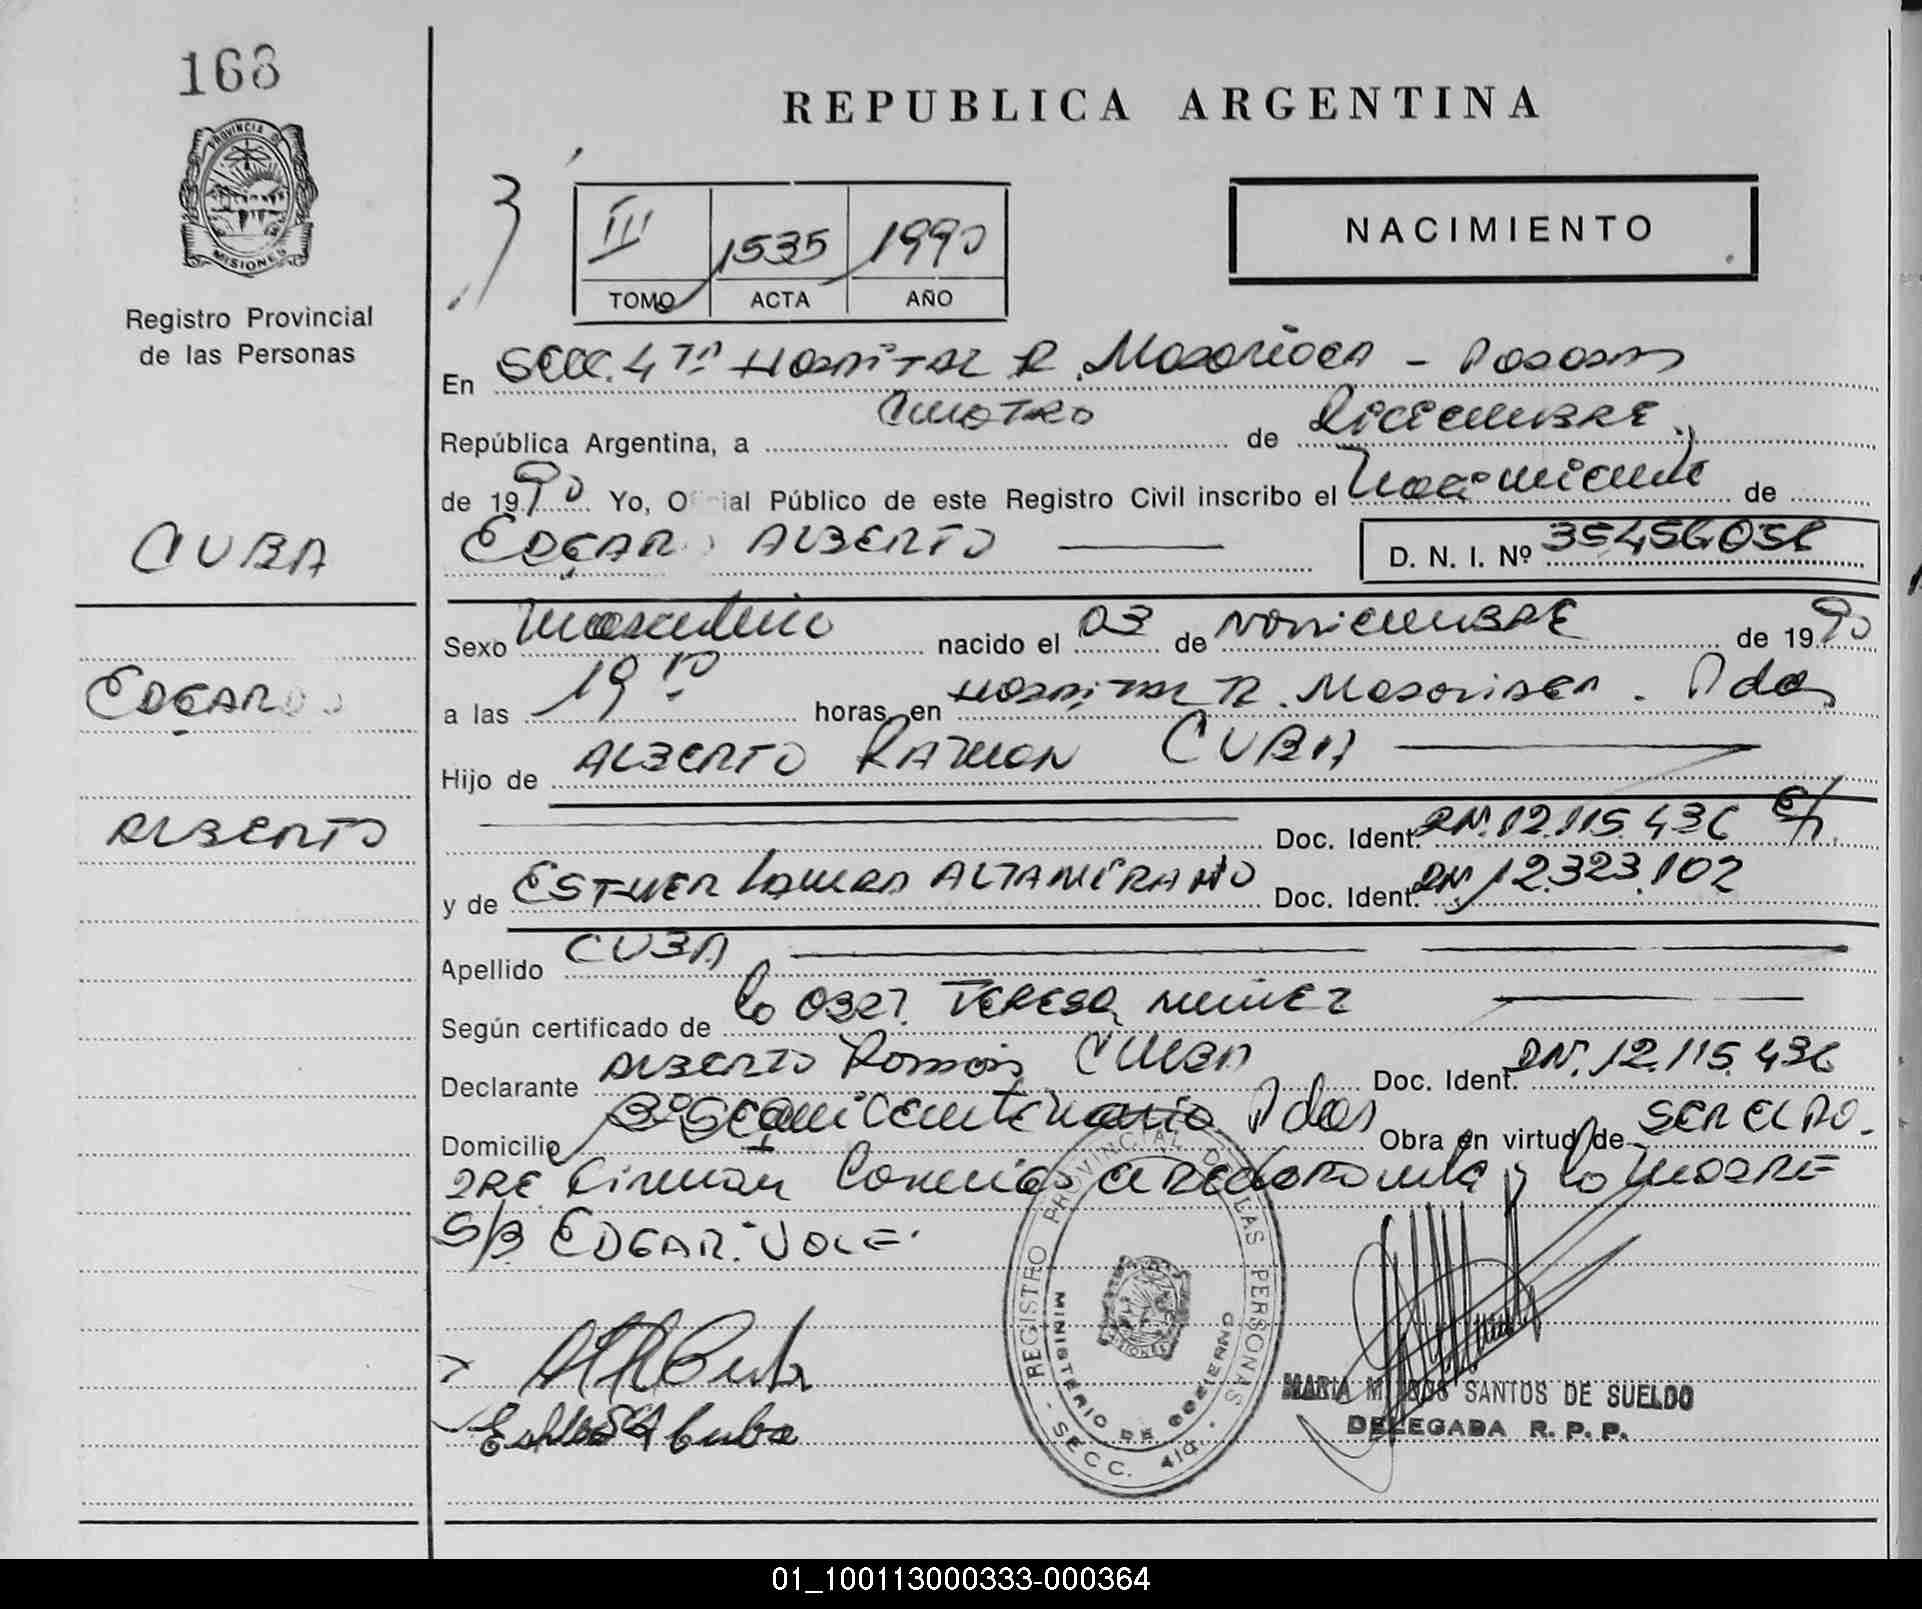 168
PROVINCIA DE
MISIONES
Registro Provincial
de las Personas
CUBA
EDGAR
ALBERTO
REPUBLICA ARGENTINA
III 1535 1990
TOMO ACTA AÑO
NACIMIENTO
En SECC. 4ta HOSPITAL R. Madariaga - Posadas
República Argentina, a CUATRO de DICIEMBRE
de 1990 Yo, Oficial Público de este Registro Civil inscribo el Nacimiento de
EDGAR ALBERTO
D. N. I. Nº
Sexo Masculino nacido el 03 de NOVIEMBRE de 1990
a las 19 10 horas en HOSPITAL R. Madariaga. Pdas
Hijo de ALBERTO RAMON CUBA
Doc. Ident. DNI. 12.115.436
y de ESTHER Laura ALTAMIRANO Doc. Ident. DNI 12.323.102
Apellido CUBA
Según certificado de la OBST. TERESA NUÑEZ
Declarante ALBERTO Ramón CUBA Doc. Ident. DNI. 12.115.436
Domicilio Bº SESQuicentenario Pdas Obra en virtud de SER EL PA-
DRE Firman y la MADRE
S/B EDGAR. VALE.
REGISTRO PROVINCIAL DE LAS PERSONAS
MINISTERIO DE GOBIERNO
- SECC. 4ta. -
Cuba
Cuba
MARIA M. DOS SANTOS DE SUELDO
DELEGADA R. P. P.
01_100113000333-000364